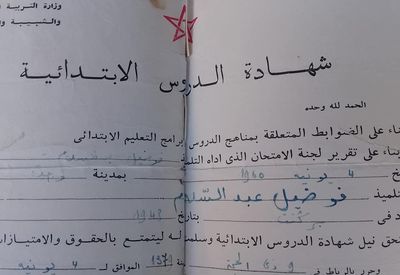 وزارة التربية
والشبيبة و
شهادة الدروس الابتدائية
الحمد لله وحده
ناء على الضوابط المتعلقة بمناهج الدروس وبرامج التعليم الابتدائى
بناء على تقرير لجنة الامتحان الذى اداه التلميذ
خ 4 يونيه 1960 بمدينة
تلميذ فوضيل عبد السلام
د فى بتاريخ 1943
تحق نيل شهادة الدروس الابتدائية وسلمت له ليتمتع بالحقوق والامتيازات
وحرر بالرباط فى 9 ذى الحجة 1379 الموافق ل 4 يونيه